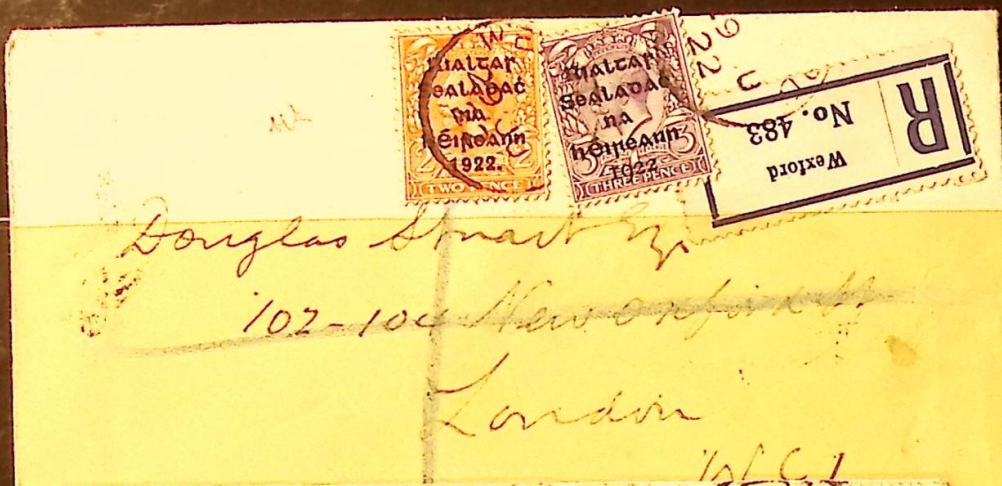 Rialtar
Sealadac
na
hÉireann
1922.
TWO PENCE
Rialtar
Sealadac
na
hÉireann
1922.
3 3
THREE PENCE
R
Wexford
No. 483
Douglas Stuart Esq.
102-104 New Oxford St
London
W C 1